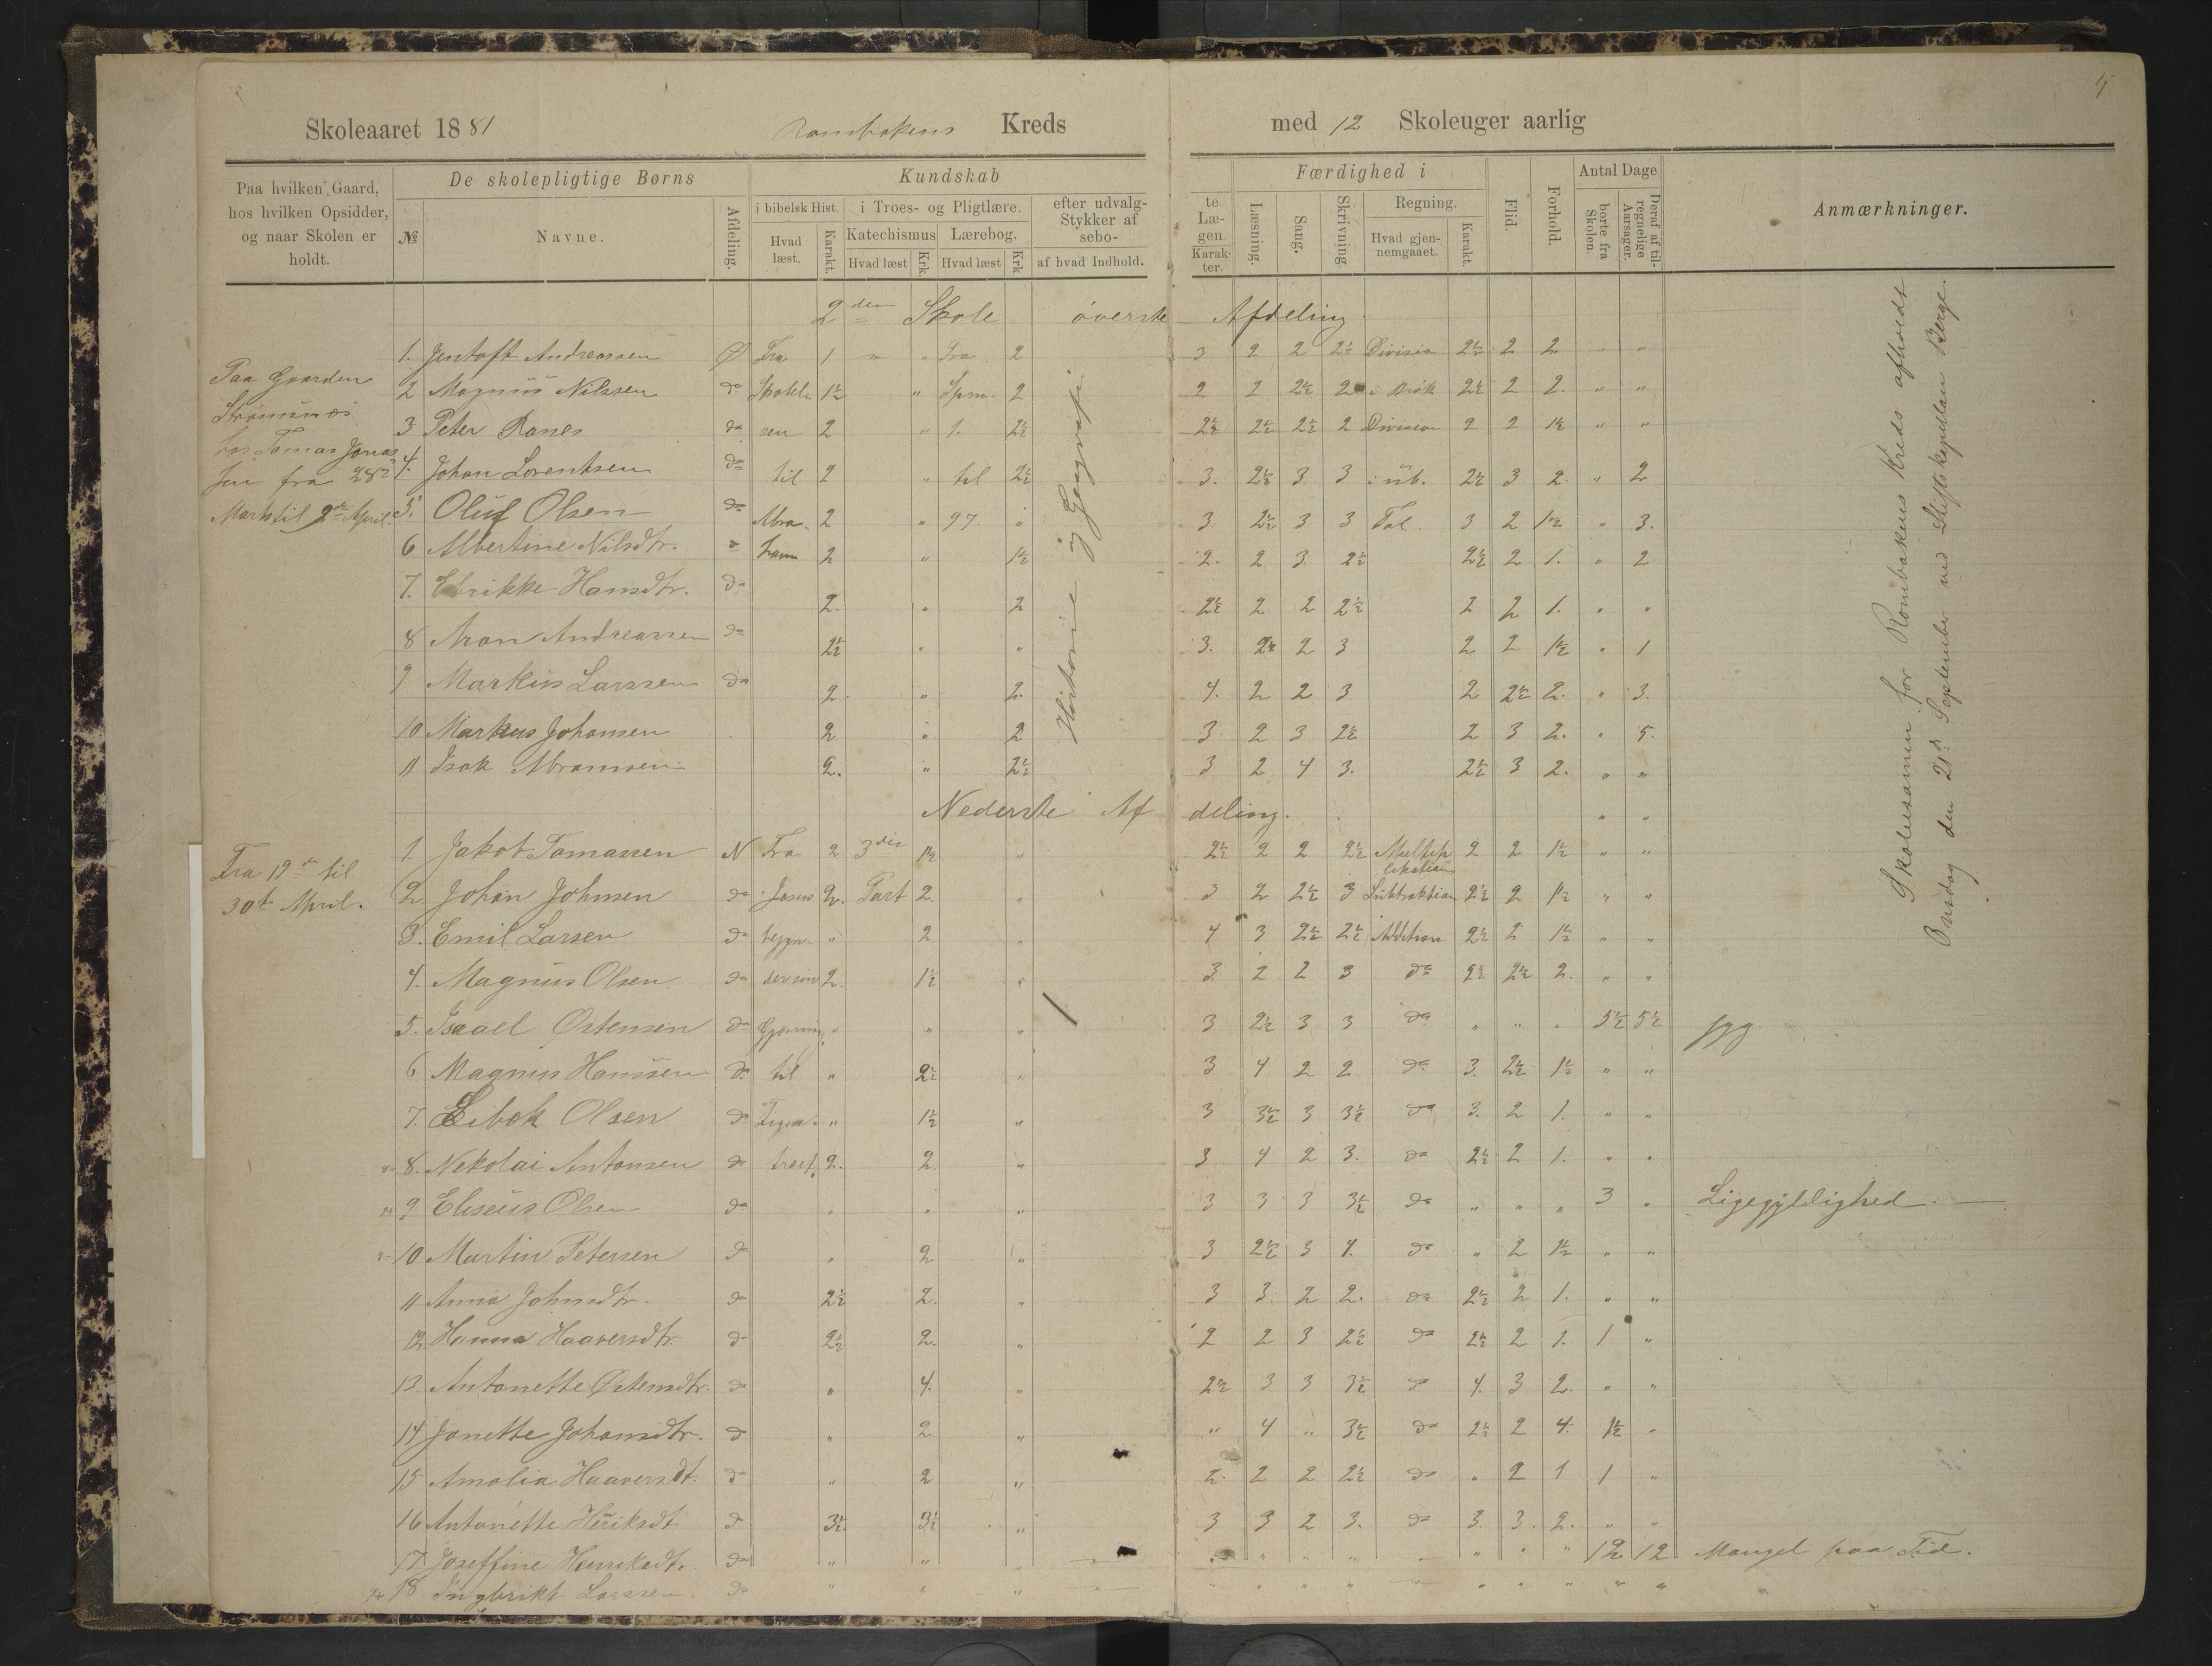 4
Skoleaaret 1881 Rombakens Kreds med 12 Skoleuger aarlig
Paa hvilken Gaard, hos hvilken Opsidder, og naar Skolen er holdt.
De skolepligtige Børns
№ Navne. Afdeling.
Kundskab
i bibelsk Hist. i Troes- og Pligtlære. efter udvalg- te
Stykker af Læ-
sebo- gen.
Katechismus Lærebog.
Hvad læst. Karakt. Hvad læst Krk. Hvad læst Krk. af hvad Indhold. Karak-ter.
Færdighed i
Læsning. Sang. Skrivning. Regning.
Hvad gjen-nemgaaet. Karakt.
Flid. Forhold.
Antal Dage
borte fra Skolen. Deraf af til-regnelige Aarsager.
Anmærkninger.
2den Skole øverste Afdeling
Paa Gaarden
Strømsnes
hos Tomas Jonas
sen fra 28de
Marts til 9de April.
1. Jentoft Andreassen Ø Fra 1 " " Fra 2 3 2 2 2½ Division 2½ 2 2 " "
2 Magnus Nilssen do Skabel 1½ " Spm. 2 2 2 2½ 2 i Brøk 2½ 2 2. " "
3 Peter Ranes do sen 2 " 1. 2½ 2½ 2½ 2½ 2 Division 2 2 1½ " "
4. Johan Lorentsen do til 2 " til 2½ 3. 2½ 3 3 i ub. 2½ 3 2. " 2
5. Oluf Olsen do Abra- 2 " 97 " 3. 2½ 3 3 Tal. 3 2 1½ " 3.
6 Albertine Nilsdtr. " ham 2 " 1½ 2. 2 3 2½ 2½ 2 1. " 2
7. Edrikke Hansdtr. do 2. " 2 2½ 2 2 2½ 2 2 1. " "
8 Aron Andreassen do 2½ " " 3. 2½ 2 3 2 2 1½ " 1
9 Markus Larssen do 2. " 2. 4. 2 2 3 2 2½ 2. " 3.
10 Markus Johansen 2 " 2 3. 2 3 2½ 2 3 2. " 5.
11 Isak Abramsen 2. " 2½ 3 2 4 3. 2½ 3 2. " "
Historie og Geografi
Nederste Afdeling. " "
Fra 19de til
30te April.
1. Jakob Tomassen N Fra 2 3die 1½ " 2½ 2 2 2½ Multip likation 2 2 1½ " "
2. Johan Johnsen do Jesus 2. Part 2. " 3 2 2½ 3 Subtraktion 2½ 2 1½ " "
3. Emil Larsen do begyn- " 2 " 4 3 2½ 2½ Addition 2½ 2 1½ " "
4. Magnus Olsen do der sin 2. 1½ " 3. 2 2 3 do 2½ 2½ 2. " "
5. Isael Østensen do Gjerning " " " 3 2½ 3 3 do " " " 5½ 5½ syg
6 Magnus Hanssen do til " 2½ " 3 4 2 2 do 3. 2½ 1½ " "
7. Eibek Olsen do Figen- " 1½ " 3 3½ 3 3½ do 3. 2 1. " "
8. Nekolai Antonsen do træet 2. 2. " 3 4 2 3. do 2½ 2 1. " "
9 Eliseus Olsen do " " " 3 3 3 3½ do " " " 3 " Ligegyldighed.
10 Martin Petersen do " 2 " 3 2½ 3 4. do " 2 1½ " "
11 Anna Johnsdtr. do 2½ 2. " 3 3. 2 2. do 2½ 2 1. " "
12 Hanna Haaversdtr. do 2½ 2. " 2 2 3 2½ do 2½ 2 1. 1 "
13. Antonette Østensdtr. do " 4. " 2½ 3 3 3½ do 4. 3 2. " "
14 Janette Johansdtr. do " 2 " " 4 " 3½ do 2½ 2 4. 1½ "
15 Amalia Haaversdt. do " 2 " 2. 2 2 2½ do " 2 1 1 "
16 Antonette Heriksdt. do 3½ 3½ " 3 3 2 3. do 3. 3. 2. " "
17. Joseffine Henriksdtr. do " " " " " " " " " " 12 12 Mangel paa Tid.
18. Ingbrikt Larssen. do " " " " " " " " " " " "
Skolexamen for Rombakens Kreds afholdt
Onsdag den 21de September ved Stiftskapellan Berge.